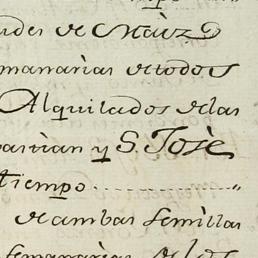 des de Maiz
manarias de todos
Alquilados de las
bastian y S. Jose
tiempo
de ambas semillas
semanarias de los